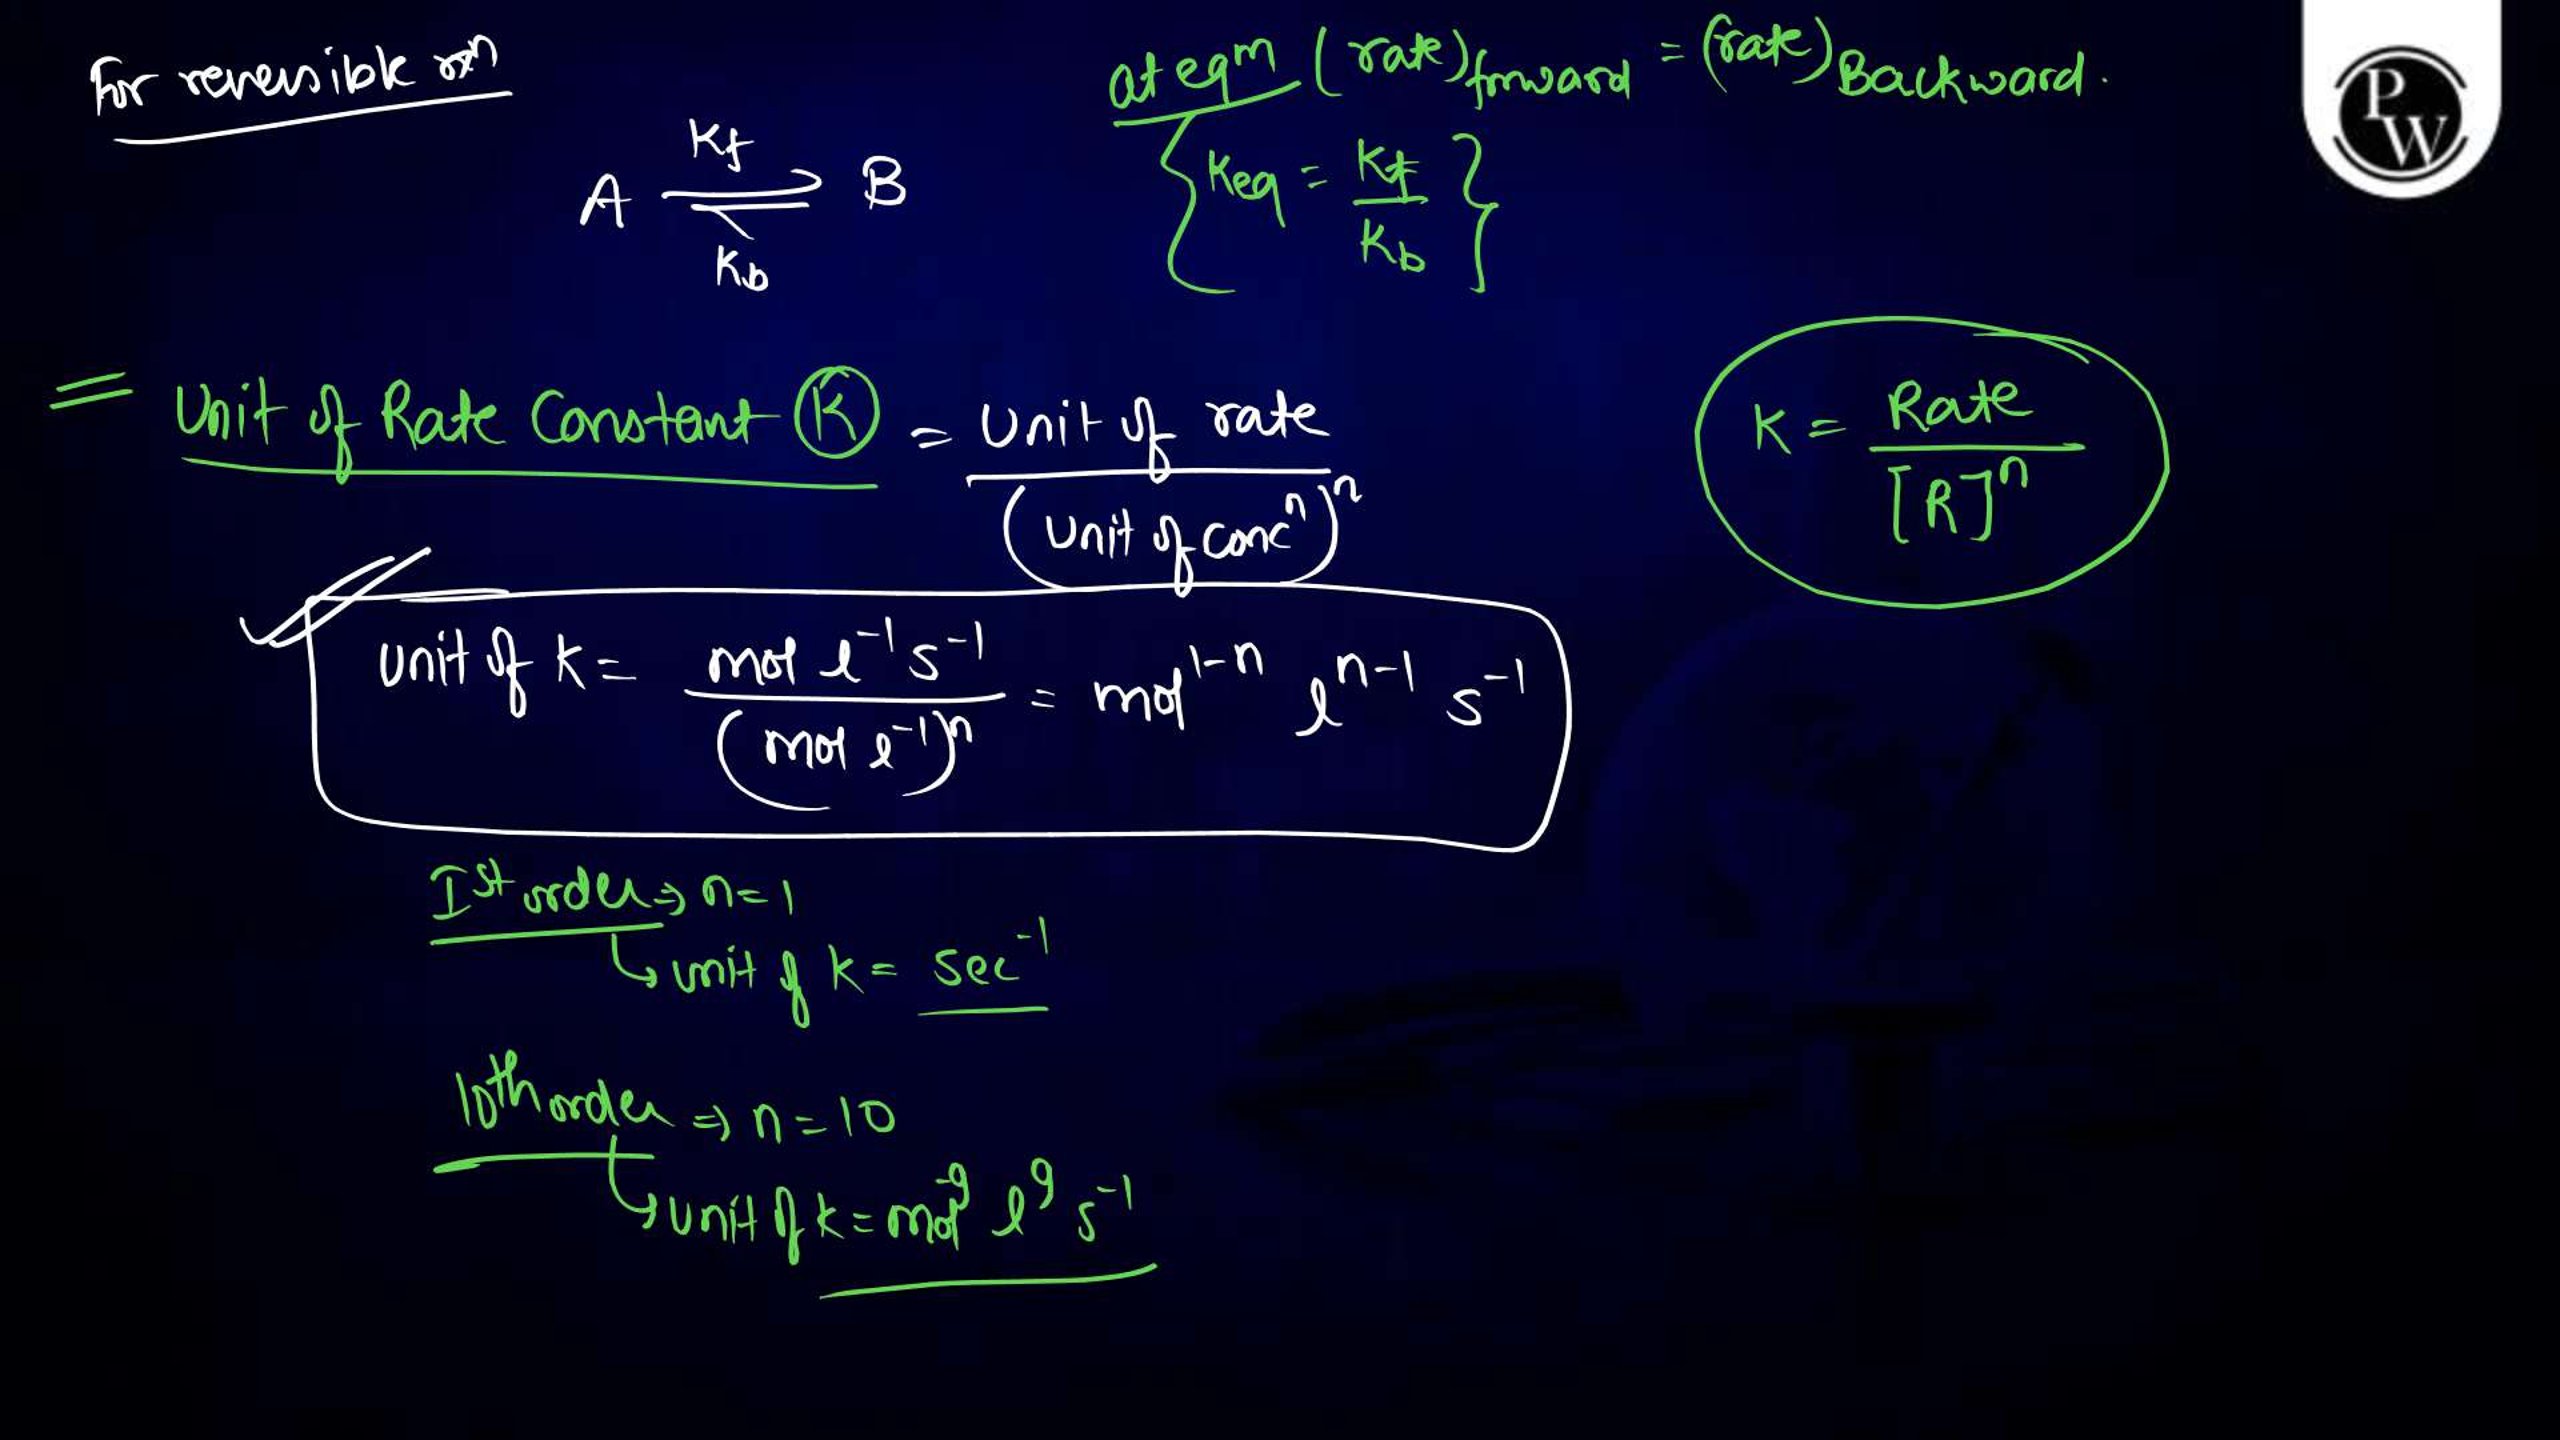 For reversible rxⁿ
at eqᵐ (rate)forward = (rate)Backward.
A ⇌ B
Kf
Kb
{Keq = Kf/Kb}
= Unit of Rate Constant (K) = Unit of rate / (unit of concⁿ)ⁿ
K = Rate / [R]ⁿ
unit of k = mol l⁻¹ s⁻¹ / (mol l⁻¹)ⁿ = mol¹⁻ⁿ lⁿ⁻¹ s⁻¹
Iˢᵗ order ⇒ n = 1
↳ unit of k = sec⁻¹
10th order ⇒ n = 10
↳ unit of k = mol⁻⁹ l⁹ s⁻¹
PW